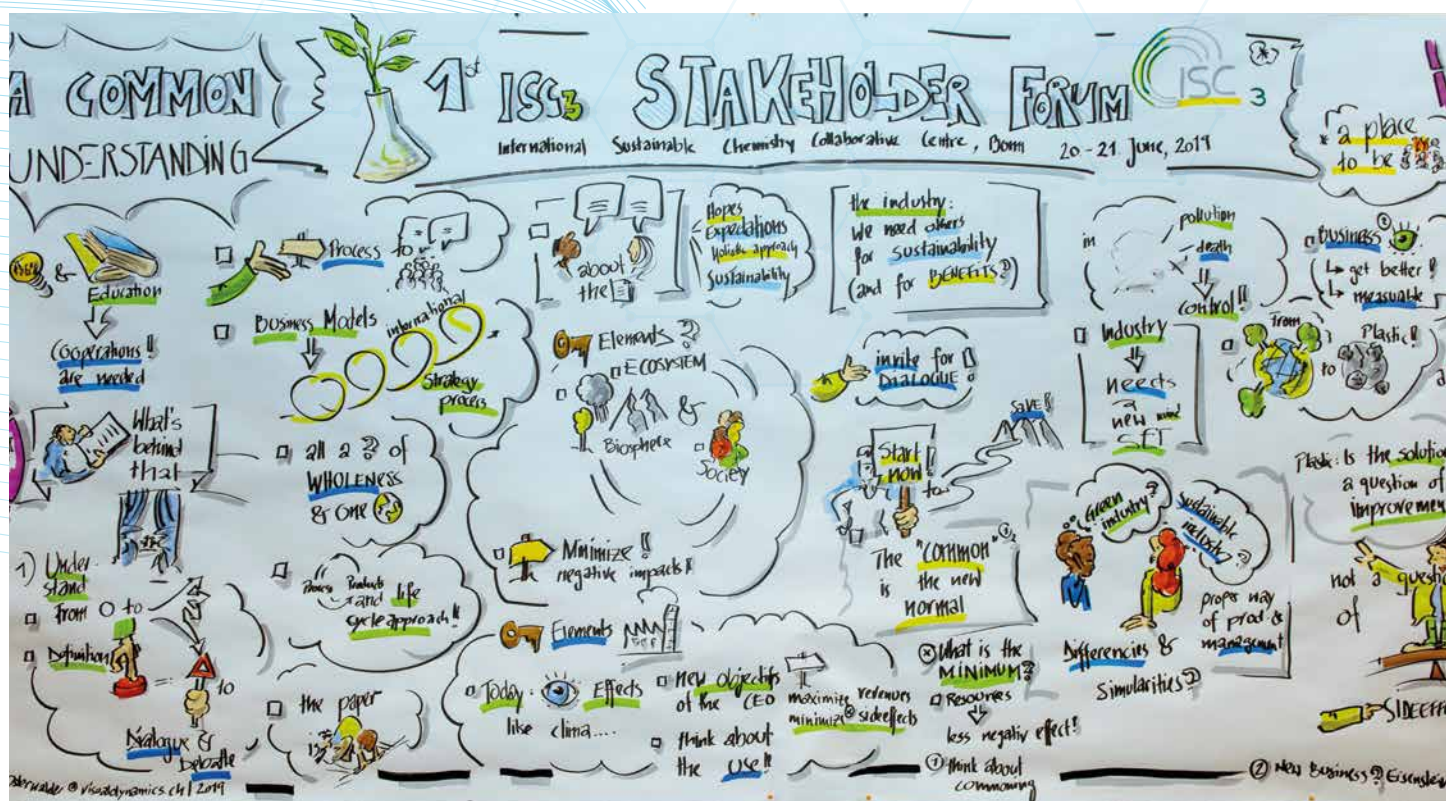 A COMMON
UNDERSTANDING
1st ISC3 STAKEHOLDER FORUM
ISC 3
International Sustainable Chemistry Collaborative Centre, Bonn 20-21 June, 2019
* a place
to be
&
Education
Cooperations!
are needed
What's
behind
that
1) Under-
stand
from O to
Definition
to
Dialogue &
Debatte
@visualdynamics.ch | 2019
Process to
Business Models
international
Strategy
process
all a ? of
WHOLENESS
& one
Process Products
and life
cycle approach!!
the paper
about
the
Hopes
Expectations
Holistic approach
Sustainability
Elements?
ECOSYSTEM
&
Biosphere
Society
Minimize!!
negative impacts!!
Elements
Today: Effects
like clima....
new objectifs
of the CEO
think about
the use!!
maximize revenues
minimize sideeffects
the industry:
we need others
for sustainability
(and for BENEFITS?)
invite for
DIALOGUE!
SAVE!!
Start
now!
to
The "common"
is the new
normal
What is the
MINIMUM?
Resources
less negativ effect!
1 think about
commoning
in
pollution
death
control!!
Industry
needs
a
new mind
SET
Green
industry?
Sustainable
industry?
Differencies &
Simularities?
proper way
of prod &
management
Business 2
get better!
measuable
from
to
Plastic!
Plastic: Is the solution
a question of
improvement
not a question
of
2 New Business? Eisenstein